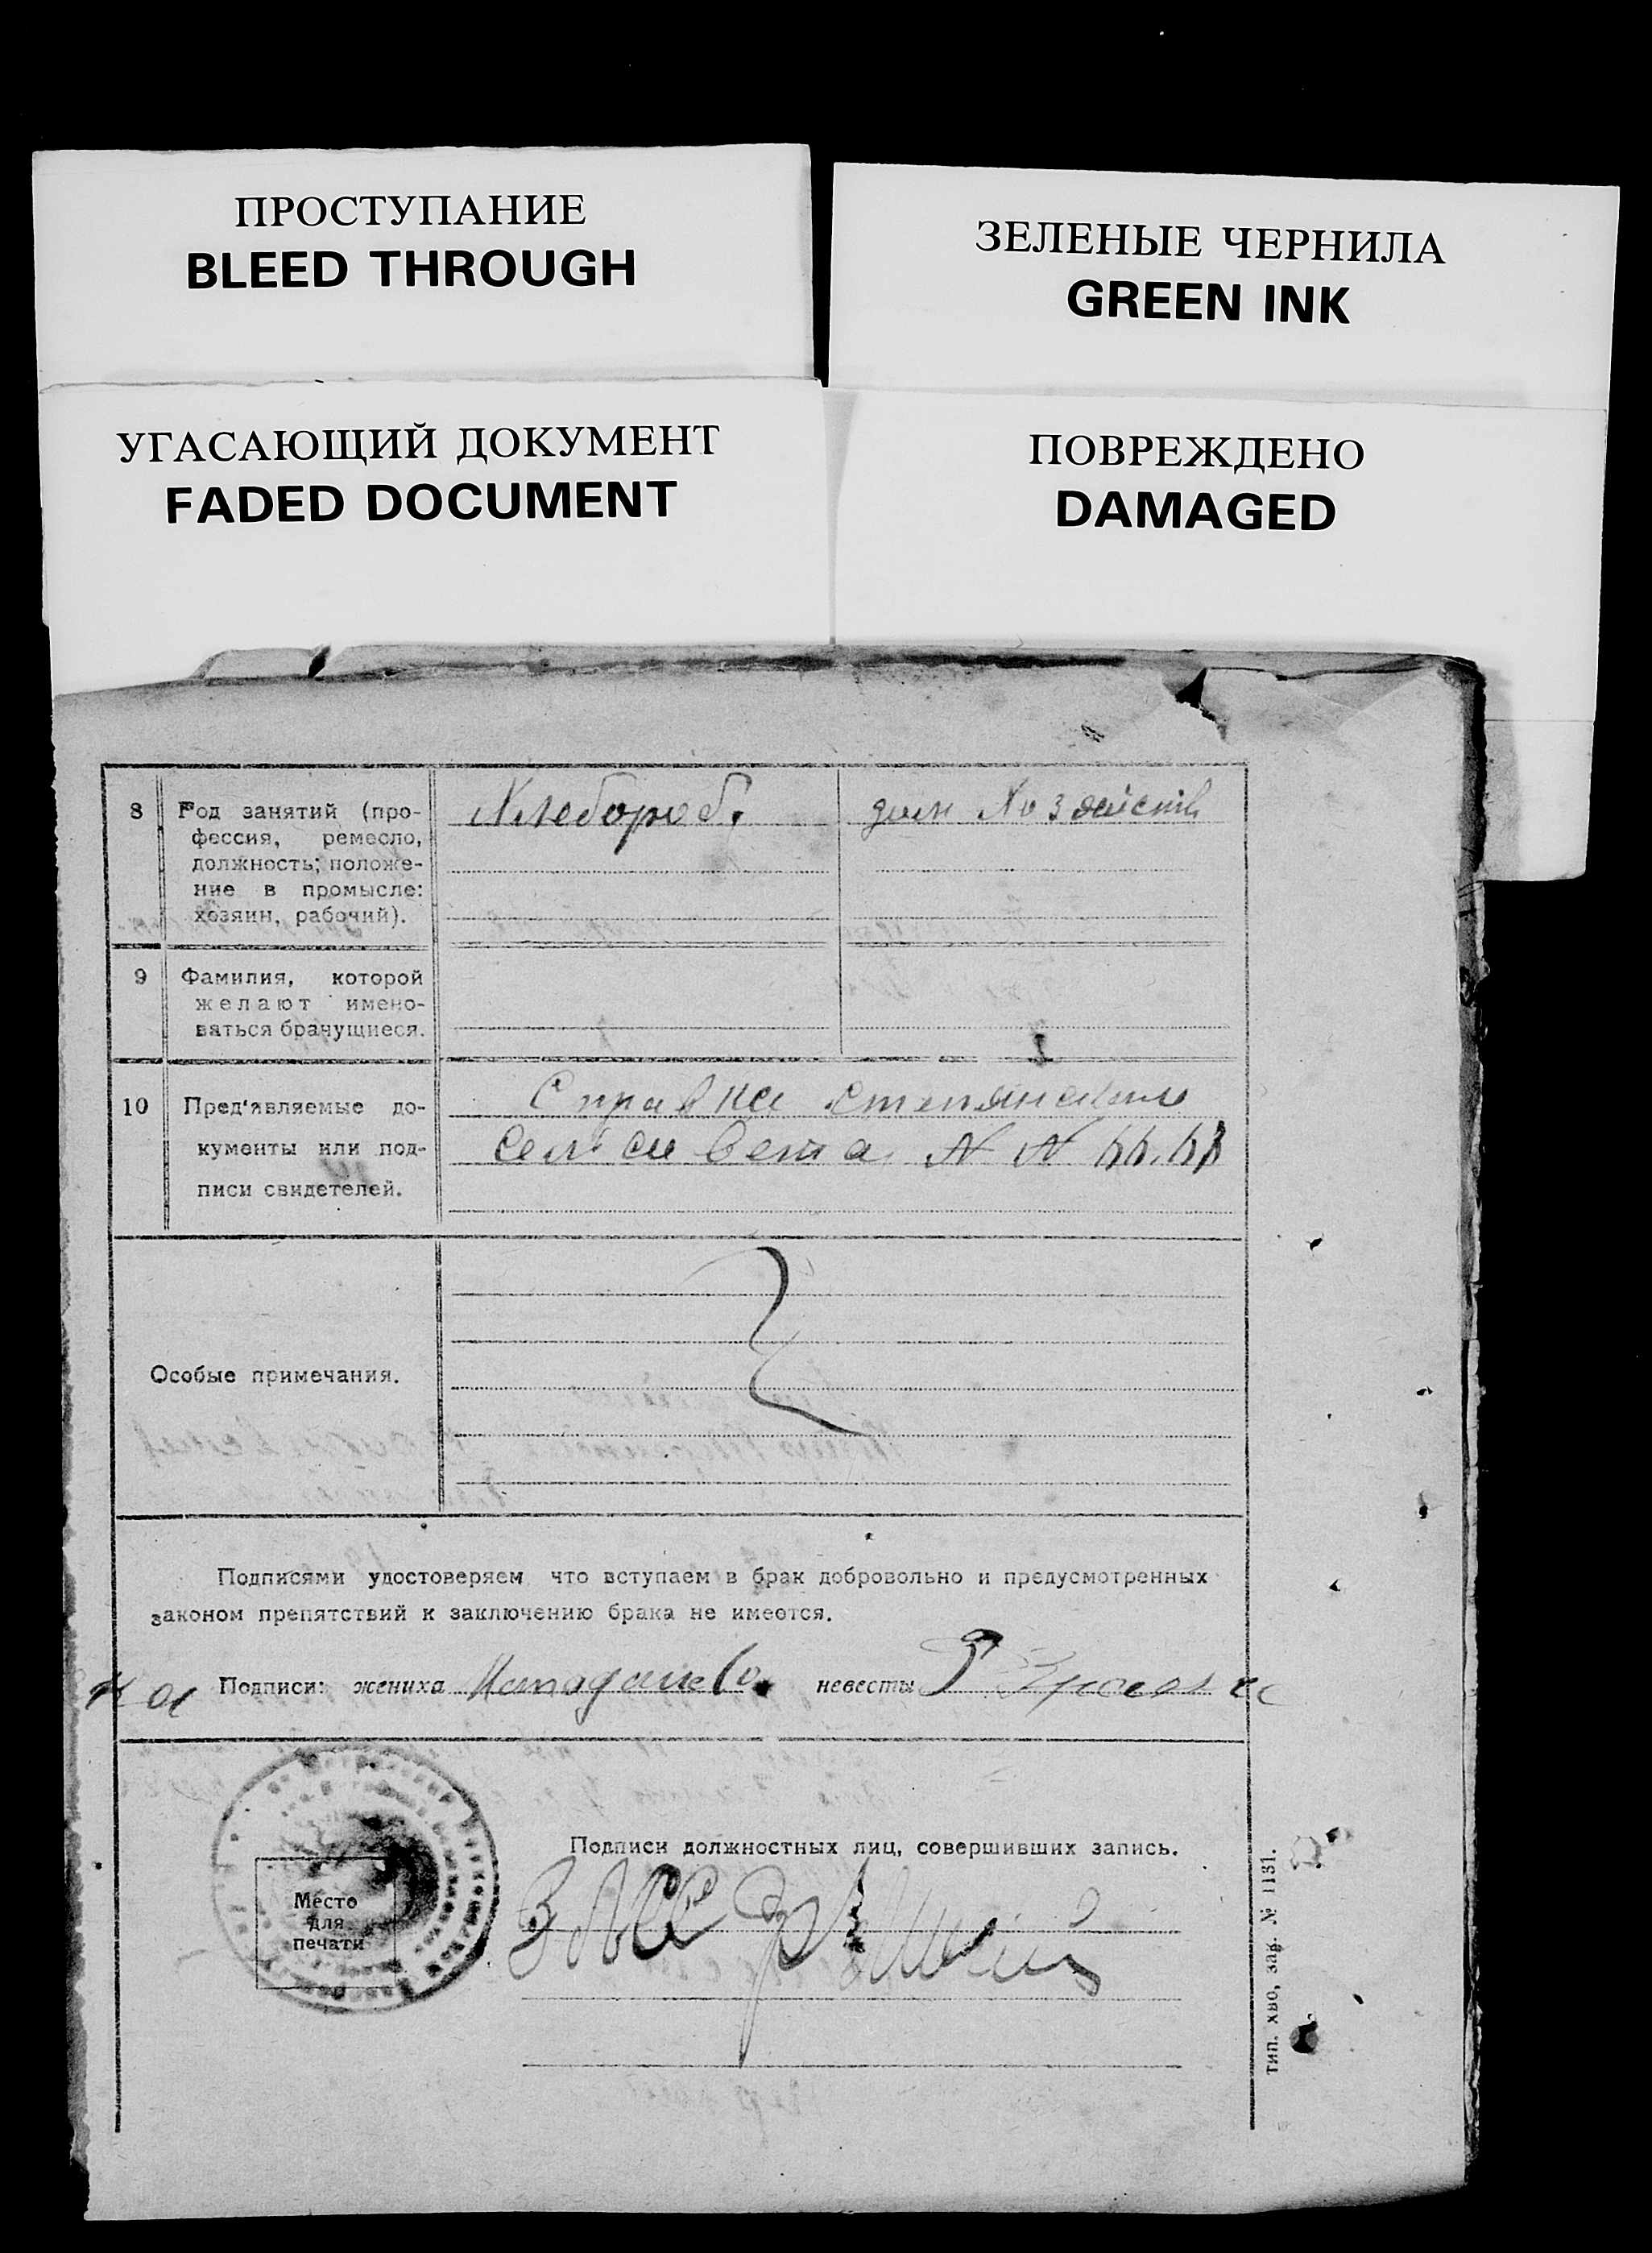 ПРОСТУПАНИЕ
BLEED THROUGH
ЗЕЛЕНЫЕ ЧЕРНИЛА
GREEN INK
УГАСАЮЩИЙ ДОКУМЕНТ
FADED DOCUMENT
ПОВРЕЖДЕНО
DAMAGED
8 Род занятий (про-
фессия, ремесло,
должность; положе-
ние в промысле:
хозяин, рабочий).
Хлебороб.
дом хозяйств
9 Фамилия, которой
желают имено-
ваться брачущиеся.
10 Пред'являемые до-
кументы или под-
писи свидетелей.
Справка
сельсовета N N
Особые примечания.
Подписями удостоверяем что вступаем в брак добровольно и предусмотренных
законом препятствий к заключению брака не имеется.
Подписи: жениха невесты
Подписи должностных лиц, совершивших запись.
Место
для
печати
тип. хво, зак. № 1131.